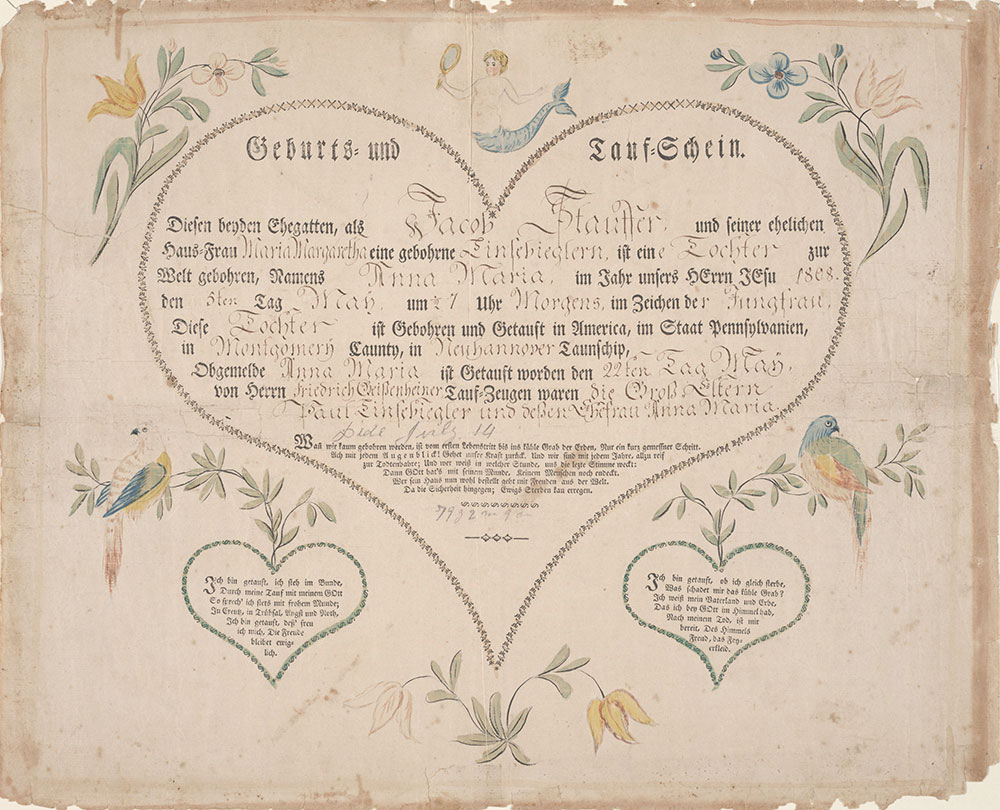 Geburts- und Tauf-Schein.
Diesen beyden Ehegatten, als Jacob Stauffer, und seiner ehelichen
Haus-Frau Maria Margaretha eine gebohrne Einschieglern, ist eine Tochter zur
Welt gebohren, Namens Anna Maria, im Jahr unsers HErrn JEsu 1808.
den 5ten Tag May, um ½ 7 Uhr Morgens, im Zeichen der Jungfrau,
Diese Tochter ist Gebohren und Getauft in America, im Staat Pennsylvanien,
in Montgomery Caunty, in Neuhannover Taunschip,
Obgemelde Anna Maria ist Getauft worden den 22ten Tag May,
von Herrn Friedrich Geißenheiner Tauf-Zeugen waren die Groß Eltern
Paul Einschiegler und deßen Ehefrau Anna Maria
July 14
Wan wir kaum gebohren werden, ist vom ersten Lebenstritt bis ins kühle Grab der Erden, Nur ein kurz gemeßner Schritt.
Ach mit jedem Augenblick! Gehet unsre Kraft zurück. Und wir sind mit jedem Jahre, allzu reif
zur Todtenbahre; Und wer weiß in welcher Stunde, uns die lezte Stimme weckt:
Dann GOtt hat's mit seinem Munde, Keinem Menschen noch endeckt.
Wer sein Haus nun wohl bestellt geht mit Freuden aus der Welt.
Da die Sicherheit hingegen; Ewigs Sterben kan erregen.
Ich bin getauft, ich steh im Bunde,
Durch meine Tauf mit meinem GOtt
So sprech' ich stets mit frohem Munde;
In Creutz, in Trübsal, Angst und Noth,
Ich bin getauft, deß' freu
ich mich, Die Freude
bleibet ewig-
lich.
Ich bin getauft, ob ich gleich sterbe,
Was schadet mir das kühle Grab?
Ich weiß mein Vaterland und Erbe,
Das ich bey GOtt im Himmel hab,
Nach meinem Tod, ist mir
bereit, Des Himmels
Freud, das Fey-
erkleid.